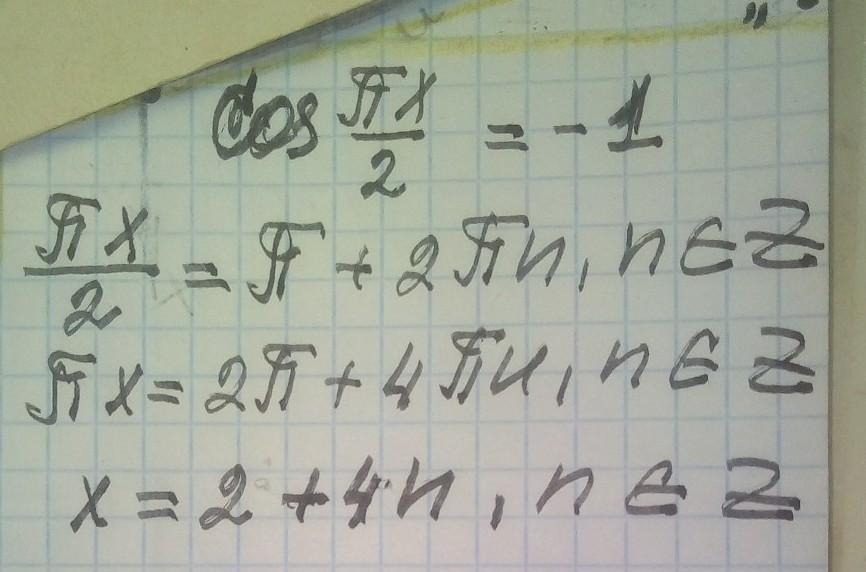 Cos πx/2 = -1
πx/2 = π + 2πn, n ∈ Z
πx = 2π + 4πn, n ∈ Z
x = 2 + 4n, n ∈ Z